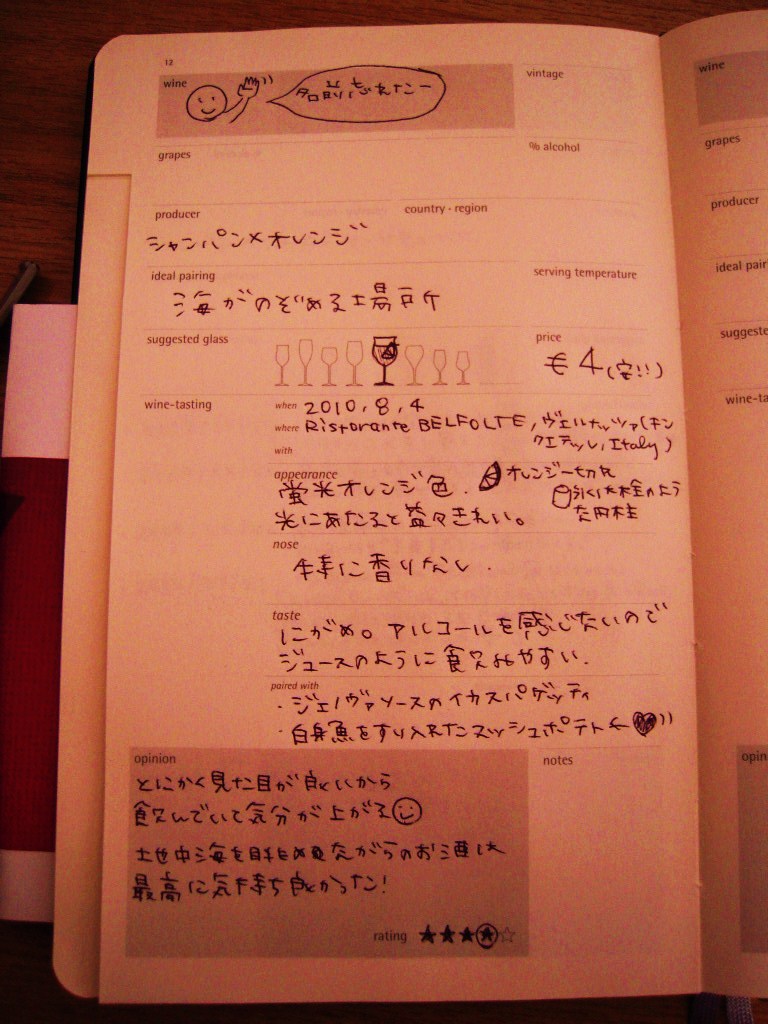 12
wine
名前忘れたー
vintage
wine
grapes
% alcohol
grapes
producer
country · region
producer
シャンパン×オレンジ
ideal pairing
serving temperature
ideal pair
海がのぞめる場所
suggested glass
price
suggeste
€ 4 (安!!)
wine-tasting
when 2010, 8, 4
wine-ta
where Ristorante BELFOLTE, ヴェルナッツァ(チン
クエテッレ, Italy)
with
appearance
蛍光オレンジ色.
オレンジ一切れ
光にあたると益々きれい。
のよう
な円柱
nose
特に香りなし.
taste
にがめ。アルコールを感じないので
ジュースのように飲みやすい.
paired with
・ジェノヴァソースのイカスパゲッティ
・白身魚をすり入れたマッシュポテト←
opinion
notes
opin
とにかく見た目が良いから
飲んでいて気分が上がる
地中海を眺めながらのお酒は
最高に気持ち良かった!
rating